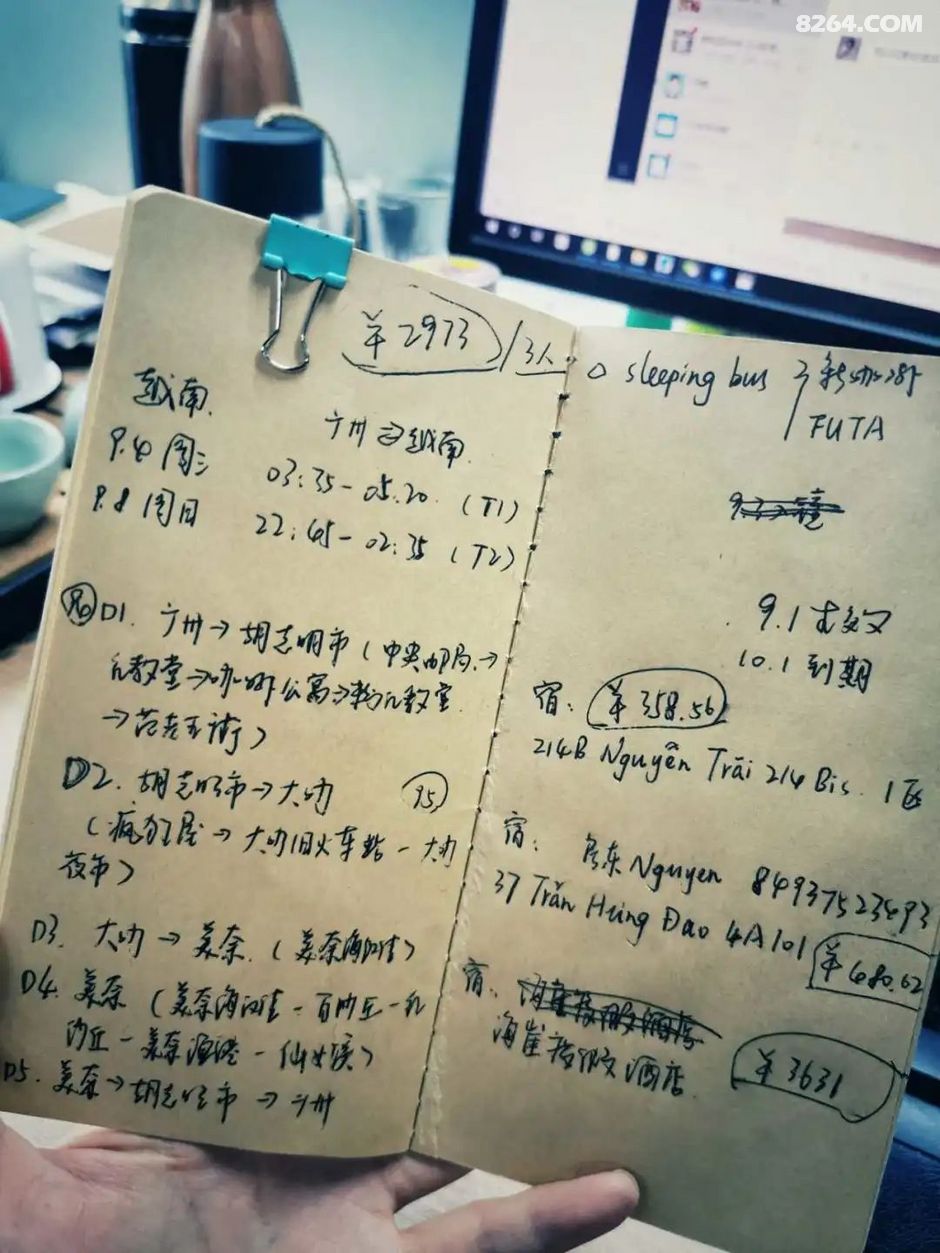 8264.COM
¥2973 /3人
越南
广州⇒越南
9.4 周三 03:35-05:20 (T1)
9.8 周日 22:45-02:35 (T2)
D1. 广州→胡志明市(中央邮局→
红教堂→咖啡公寓→粉红教堂
→范老五街)
D2. 胡志明市→大叻 95
(疯狂屋→大叻旧火车站-大叻
夜市)
D3. 大叻→美奈.(美奈海滩)
D4. 美奈(美奈海滩-白沙丘-红
沙丘-美奈渔港-仙女溪)
D5. 美奈→胡志明市→广州
sleeping bus
FUTA
9.1
10.1 到期
宿: ¥358.56
214B Nguyễn Trãi 214 Bis. 1区
宿: 房东 Nguyen 84937523493
37 Trần Hưng Đạo 4A101 ¥680.62
宿:
海崖度假酒店 ¥3631